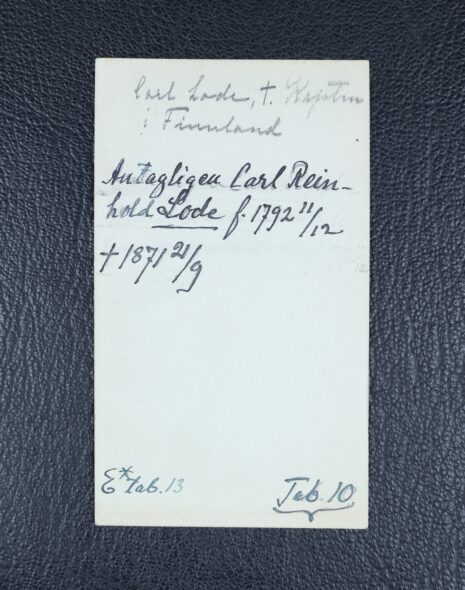 Carl Lode, †.
i Finnland
Antagligen Carl Rein-
hold Lode f. 1792 11/12
† 1871 21/9
E* Tab. 13
Tab. 10